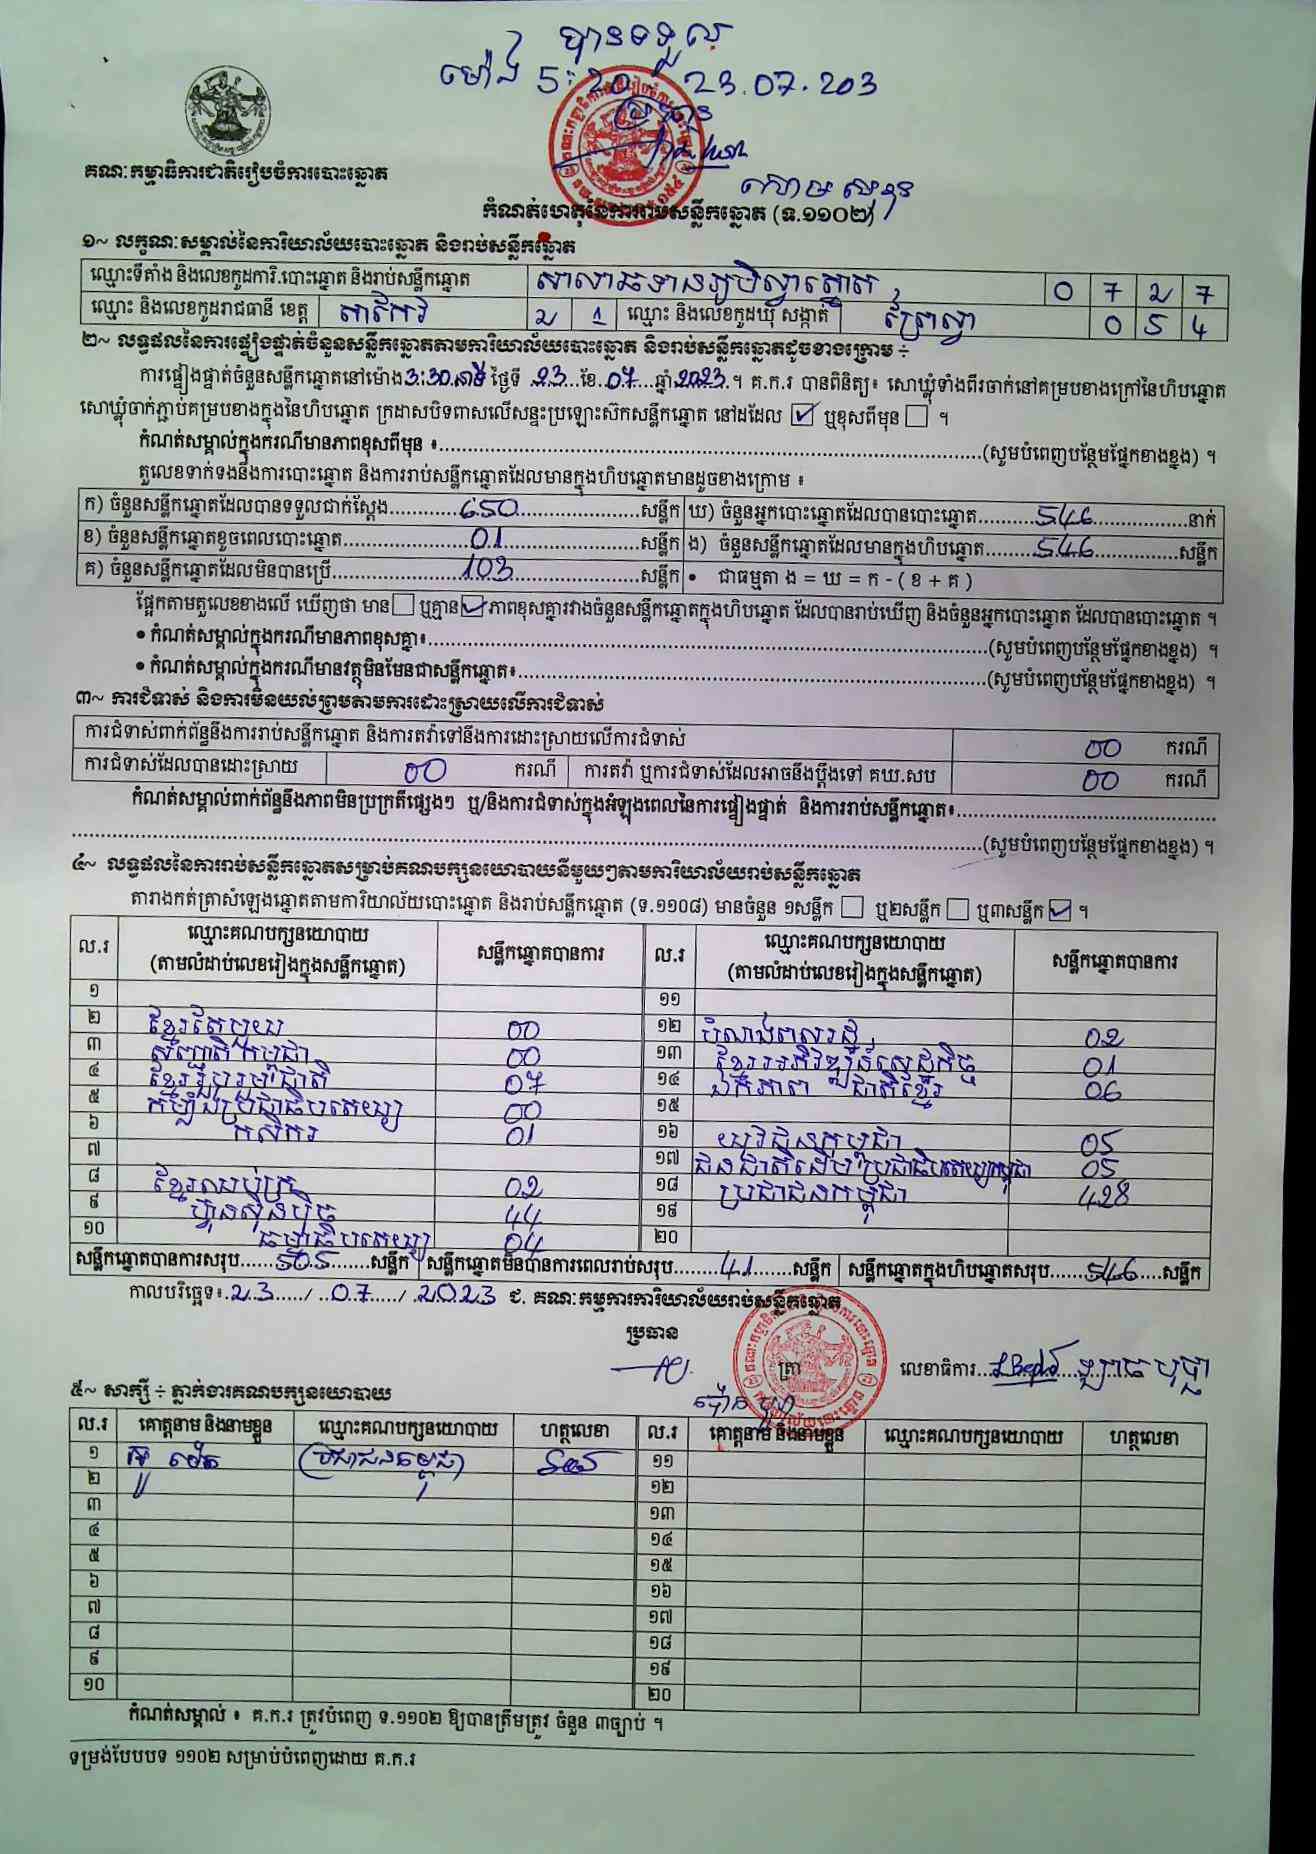 បានទទួល
ម៉ោង 5:20 23.07.203
គណៈកម្មាធិការជាតិរៀបចំការបោះឆ្នោត
កំណត់ហេតុនៃការរាប់សន្លឹកឆ្នោត (ទ.១១០២)
១~ លក្ខណៈសម្គាល់នៃការិយាល័យបោះឆ្នោត និងរាប់សន្លឹកឆ្នោត
ឈ្មោះទីតាំង និងលេខកូដការិ.បោះឆ្នោត និងរាប់សន្លឹកឆ្នោត 0 7 2 7
ឈ្មោះ និងលេខកូដរាជធានី ខេត្ត តាកែវ 2 1 ឈ្មោះ និងលេខកូដឃុំ សង្កាត់ ព្រៃស្វា 0 5 4
២~ លទ្ធផលនៃការផ្ទៀងផ្ទាត់ចំនួនសន្លឹកឆ្នោតតាមការិយាល័យបោះឆ្នោត និងរាប់សន្លឹកឆ្នោតដូចខាងក្រោម ÷
ការផ្ទៀងផ្ទាត់ចំនួនសន្លឹកឆ្នោតនៅម៉ោង 3:30 នាទី ថ្ងៃទី 23 ខែ 07 ឆ្នាំ 2023 ។ គ.ក.រ បានពិនិត្យ៖ សោឃ្លុំទាំងពីរចាក់នៅគម្របខាងក្រៅនៃហិបឆ្នោត
សោឃ្លុំចាក់ភ្ជាប់គម្របខាងក្នុងនៃហិបឆ្នោត ក្រដាសបិទពាសលើសន្ទះប្រឡោះស៊កសន្លឹកឆ្នោត នៅដដែល ☑ ឬខុសពីមុន ☐ ។
កំណត់សម្គាល់ក្នុងករណីមានភាពខុសពីមុន ៖ (សូមបំពេញបន្ថែមផ្នែកខាងខ្នង) ។
តួលេខទាក់ទងនឹងការបោះឆ្នោត និងការរាប់សន្លឹកឆ្នោតដែលមានក្នុងហិបឆ្នោតមានដូចខាងក្រោម ៖
ក) ចំនួនសន្លឹកឆ្នោតដែលបានទទួលជាក់ស្តែង 650 សន្លឹក ឃ) ចំនួនអ្នកបោះឆ្នោតដែលបានបោះឆ្នោត 546 នាក់
ខ) ចំនួនសន្លឹកឆ្នោតខូចពេលបោះឆ្នោត 01 សន្លឹក ង) ចំនួនសន្លឹកឆ្នោតដែលមានក្នុងហិបឆ្នោត 546 សន្លឹក
គ) ចំនួនសន្លឹកឆ្នោតដែលមិនបានប្រើ 103 សន្លឹក • ជាធម្មតា ង = ឃ = ក - ( ខ + គ )
ផ្អែកតាមតួលេខខាងលើ ឃើញថា មាន ☐ ឬគ្មាន ☑ ភាពខុសគ្នារវាងចំនួនសន្លឹកឆ្នោតក្នុងហិបឆ្នោត ដែលបានរាប់ឃើញ និងចំនួនអ្នកបោះឆ្នោត ដែលបានបោះឆ្នោត ។
• កំណត់សម្គាល់ក្នុងករណីមានភាពខុសគ្នា៖ (សូមបំពេញបន្ថែមផ្នែកខាងខ្នង) ។
• កំណត់សម្គាល់ក្នុងករណីមានវត្ថុមិនមែនជាសន្លឹកឆ្នោត៖ (សូមបំពេញបន្ថែមផ្នែកខាងខ្នង) ។
៣~ ការជំទាស់ និងការមិនយល់ព្រមតាមការដោះស្រាយលើការជំទាស់
ការជំទាស់ពាក់ព័ន្ធនឹងការរាប់សន្លឹកឆ្នោត និងការតវ៉ាទៅនឹងការដោះស្រាយលើការជំទាស់ 00 ករណី
ការជំទាស់ដែលបានដោះស្រាយ 00 ករណី ការតវ៉ា ឬការជំទាស់ដែលអាចនឹងប្តឹងទៅ គឃ.សប 00 ករណី
កំណត់សម្គាល់ពាក់ព័ន្ធនឹងភាពមិនប្រក្រតីផ្សេងៗ ឬ/និងការជំទាស់ក្នុងអំឡុងពេលនៃការផ្ទៀងផ្ទាត់ និងការរាប់សន្លឹកឆ្នោត៖
(សូមបំពេញបន្ថែមផ្នែកខាងខ្នង) ។
៤~ លទ្ធផលនៃការរាប់សន្លឹកឆ្នោតសម្រាប់គណបក្សនយោបាយនីមួយៗតាមការិយាល័យរាប់សន្លឹកឆ្នោត
តារាងកត់ត្រាសំឡេងឆ្នោតតាមការិយាល័យបោះឆ្នោត និងរាប់សន្លឹកឆ្នោត (ទ.១១០៨) មានចំនួន ១សន្លឹក ☐ ឬ២សន្លឹក ☐ ឬ៣សន្លឹក ☑ ។
ល.រ ឈ្មោះគណបក្សនយោបាយ (តាមលំដាប់លេខរៀងក្នុងសន្លឹកឆ្នោត) សន្លឹកឆ្នោតបានការ ល.រ ឈ្មោះគណបក្សនយោបាយ (តាមលំដាប់លេខរៀងក្នុងសន្លឹកឆ្នោត) សន្លឹកឆ្នោតបានការ
១ ១១
២ ខ្មែរតែមួយ 00 ១២ បំលាស់ពលរដ្ឋ 02
៣ សញ្ជាតិកម្ពុជា 00 ១៣ ខ្មែរអភិវឌ្ឍន៍សេដ្ឋកិច្ច 01
៤ ខ្មែររួបរួមជាតិ 07 ១៤ ឯកភាពជាតិខ្មែរ 06
៥ កម្លាំងប្រជាធិបតេយ្យ 00 ១៥
៦ កសិករ 01 ១៦ យុវជនកម្ពុជា 05
៧ ១៧ ជនជាតិដើមប្រជាធិបតេយ្យកម្ពុជា 05
៨ ខ្មែរឈប់ក្រ 02 ១៨ ប្រជាជនកម្ពុជា 428
៩ ហ៊្វុនស៊ិនប៉ិច 44 ១៩
១០ ធម្មាធិបតេយ្យ 04 ២០
សន្លឹកឆ្នោតបានការសរុប 505 សន្លឹក សន្លឹកឆ្នោតមិនបានការពេលរាប់សរុប 41 សន្លឹក សន្លឹកឆ្នោតក្នុងហិបឆ្នោតសរុប 546 សន្លឹក
កាលបរិច្ឆេទ៖ 23 / 07 / 2023 ជ. គណៈកម្មការការិយាល័យរាប់សន្លឹកឆ្នោត
ប្រធាន
ត្រា លេខាធិការ
៥~ សាក្សី ÷ ភ្នាក់ងារគណបក្សនយោបាយ
ល.រ គោត្តនាម និងនាមខ្លួន ឈ្មោះគណបក្សនយោបាយ ហត្ថលេខា ល.រ គោត្តនាម និងនាមខ្លួន ឈ្មោះគណបក្សនយោបាយ ហត្ថលេខា
១ ប្រជាជនកម្ពុជា ១១
២ ១២
៣ ១៣
៤ ១៤
៥ ១៥
៦ ១៦
៧ ១៧
៨ ១៨
៩ ១៩
១០ ២០
កំណត់សម្គាល់ ៖ គ.ក.រ ត្រូវបំពេញ ទ.១១០២ ឱ្យបានត្រឹមត្រូវ ចំនួន ៣ច្បាប់ ។
ទម្រង់បែបបទ ១១០២ សម្រាប់បំពេញដោយ គ.ក.រ